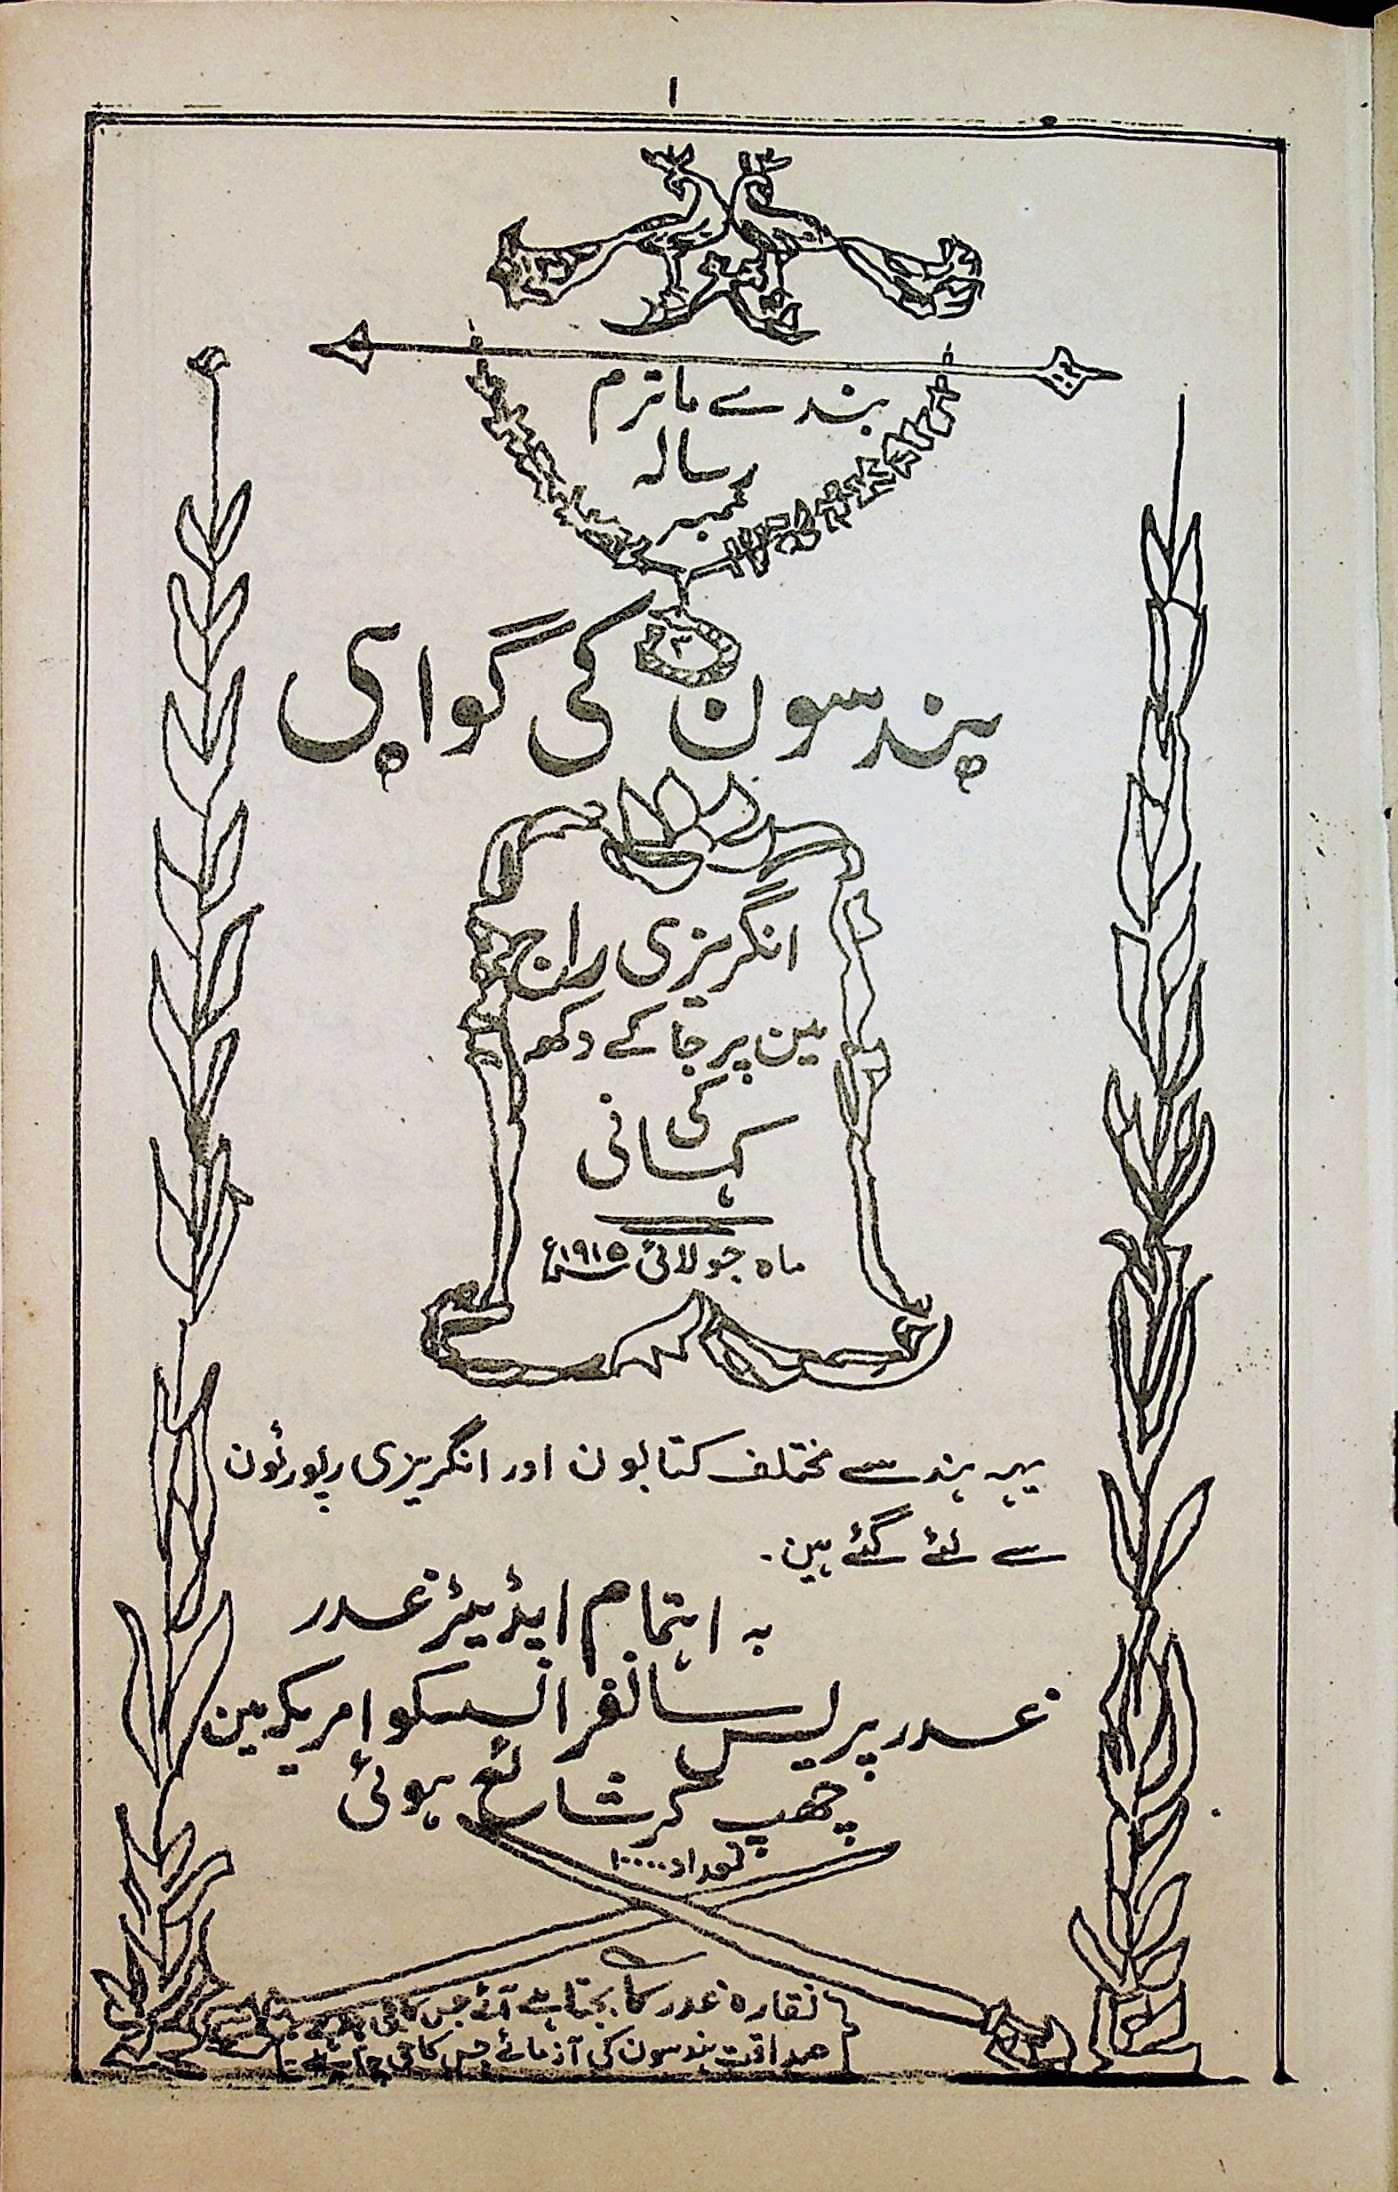 ۱
بندے ماترم
رسالہ
نمبر
۳
ہندسون کی گواہی
انگریزی راج
مین پرجا کے دکھ
کی
کہانی
ماہ جولائی ۱۹۱۵ء
یہہ ہند سے مختلف کتابون اور انگریزی رپورٹون
سے لئے گئے ہین۔
بہ اہتمام ایڈیٹر غدر
غدر پریس سانفرانسسکو امریکہ مین
چھپ کر شائع ہوئی
تعداد ۱۰۰۰۰
نقارہ غدر کا بجتا ہے آئے جس کا جی چاہے
صداقت ہندسون کی آزمائے جس کا جی چاہے